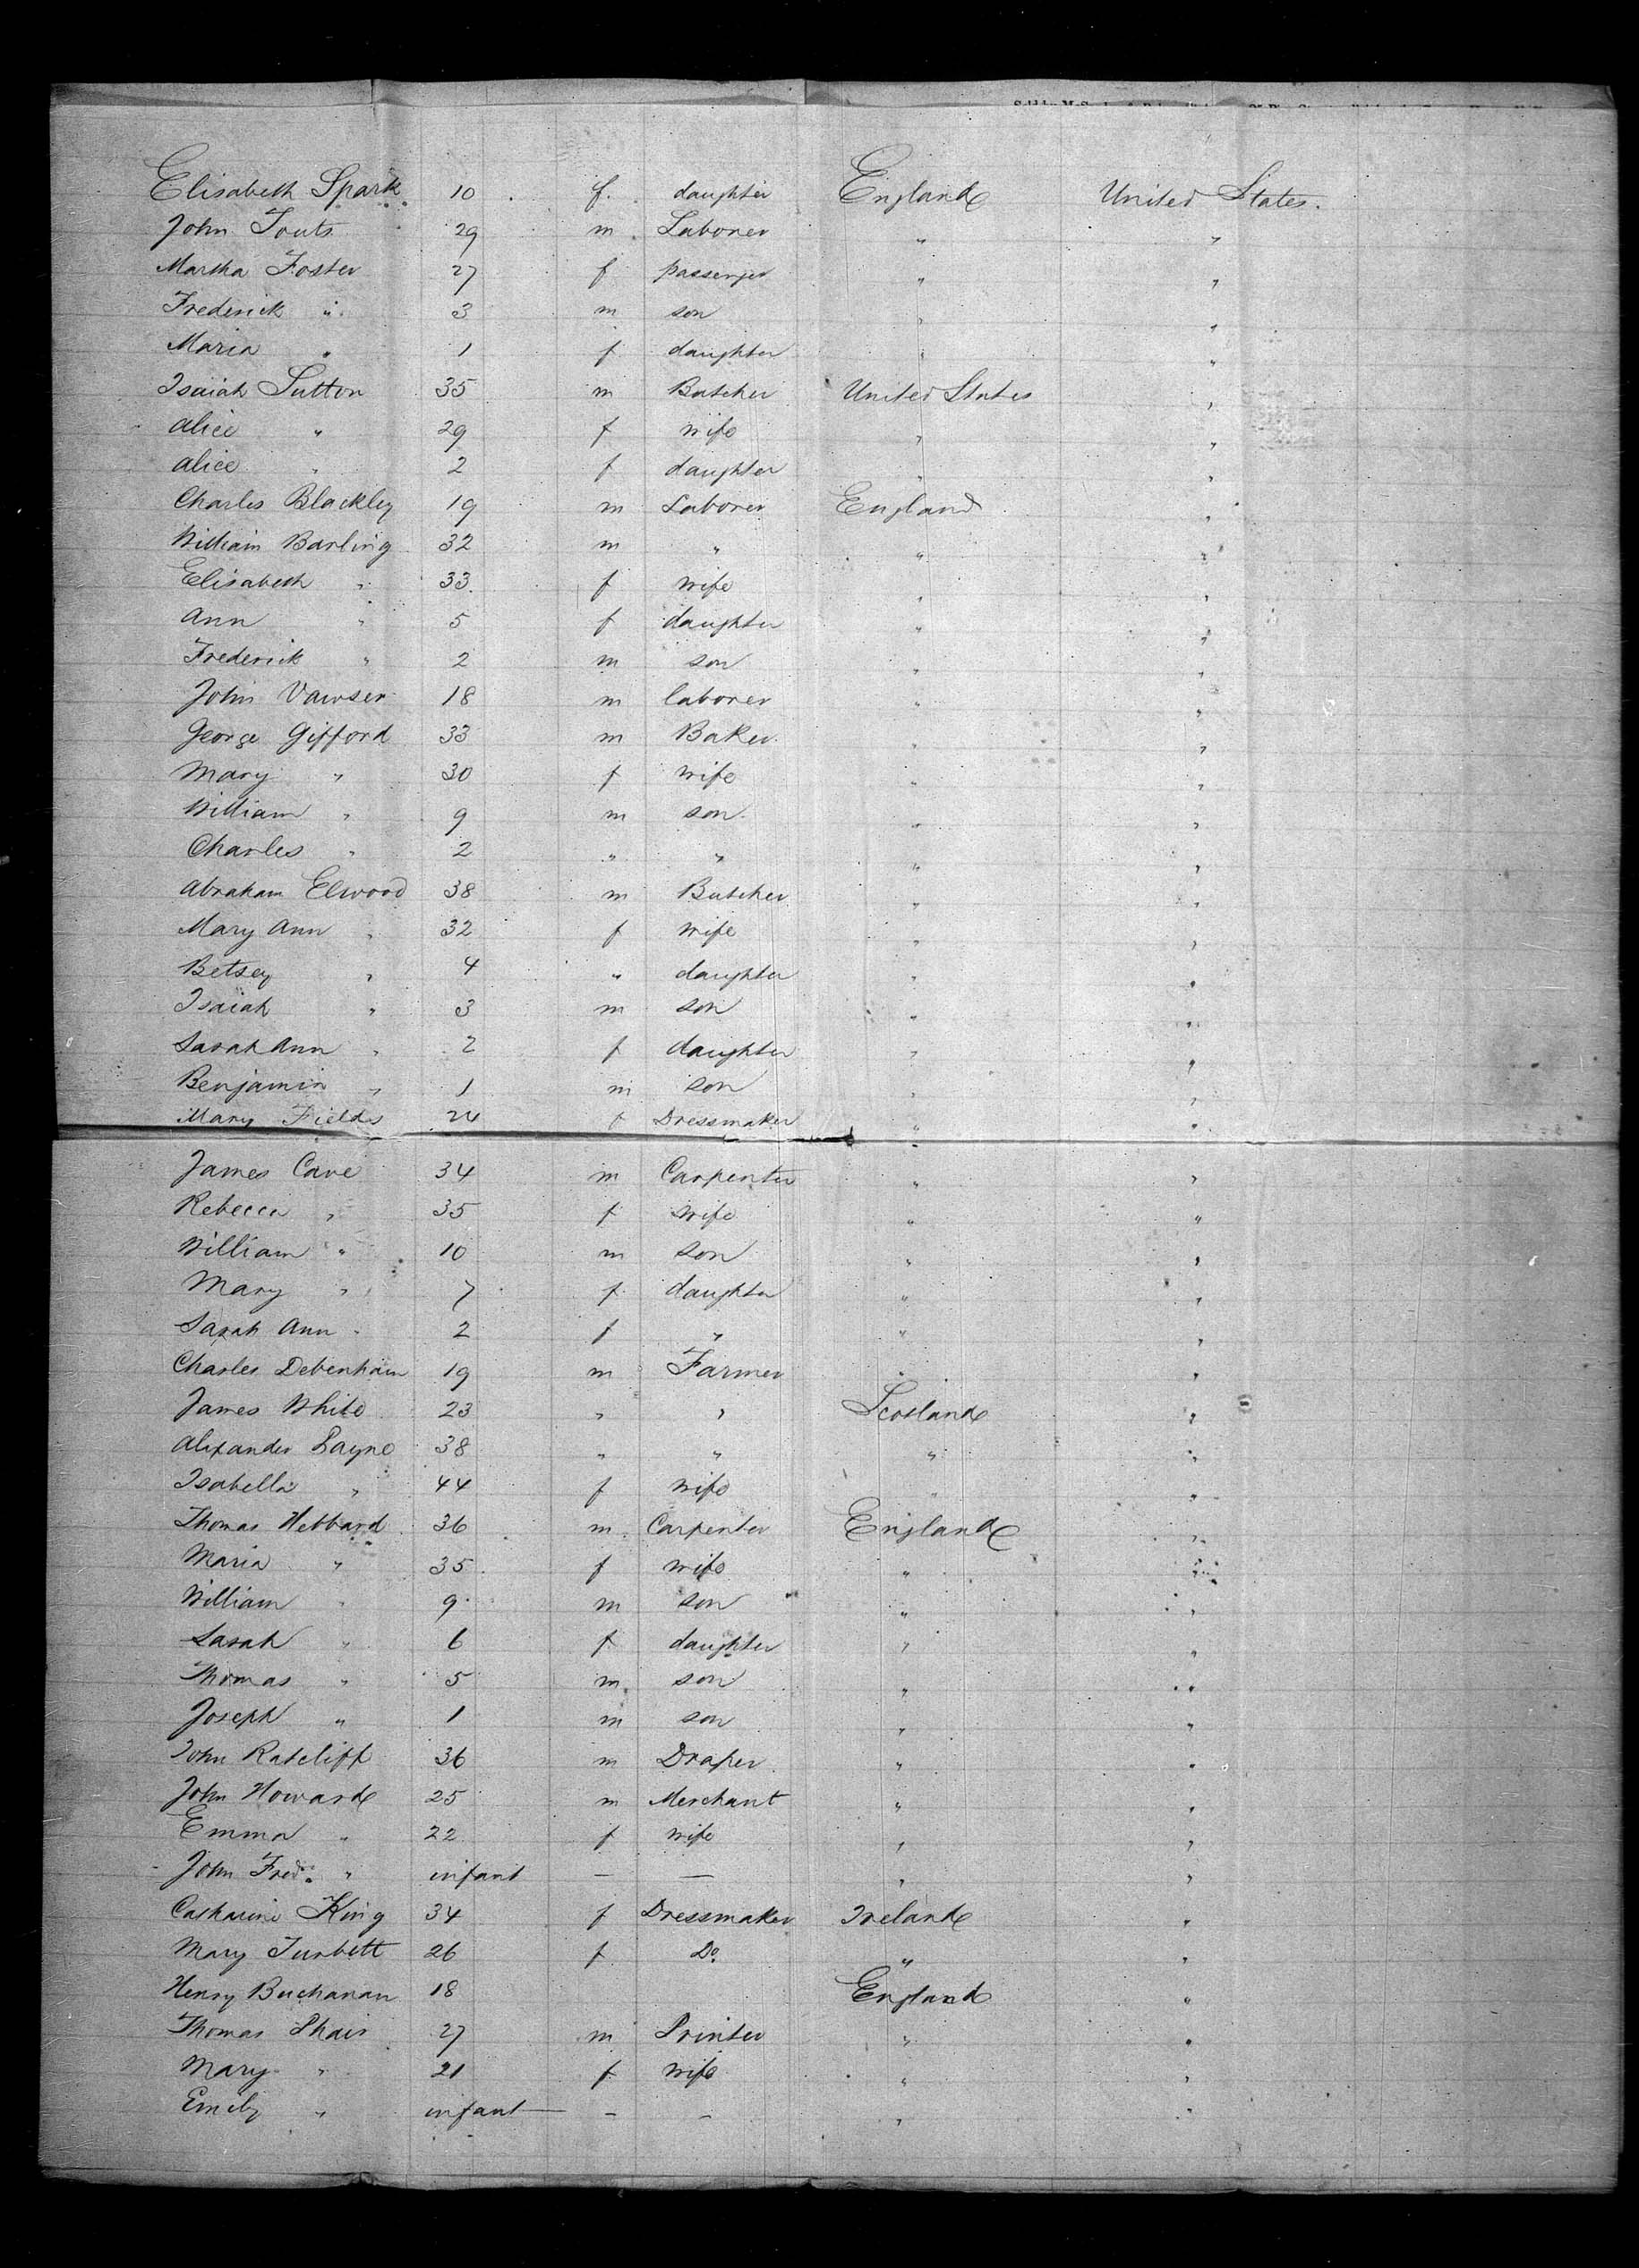 Elisabeth Spark 10 f. daughter England United States.
John Touts 29 m Laborer " "
Martha Foster 27 f passenger " "
Frederick " 3 m son " "
Maria " 1 f daughter " "
Isaiah Sutton 35 m Butcher United States "
Alice " 29 f wife " "
Alice " 2 f daughter " "
Charles Blackley 19 m Laborer England "
William Barling 32 m " " "
Elisabeth " 33 f wife " "
Ann " 5 f daughter " "
Frederick " 2 m son " "
John Vawser 18 m laborer " "
George Gifford 33 m Baker " "
Mary " 30 f wife " "
William " 9 m son " "
Charles " 2 " " " "
Abraham Elwood 38 m Butcher " "
Mary Ann " 32 f wife " "
Betsey " 4 " daughter " "
Isaiah " 3 m son " "
Sarah Ann " 2 f daughter " "
Benjamin " 1 m son " "
Mary Fields 24 f Dressmaker " "
James Cave 34 m Carpenter " "
Rebecca " 35 f wife " "
William " 10 m son " "
Mary " 7 f daughter " "
Sarah Ann " 2 f " " "
Charles Debenham 19 m Farmer " "
James White 23 " " Scotland "
Alexander Payne 38 " " " "
Isabella " 44 f wife " "
Thomas Hebbard 36 m Carpenter England "
Maria " 35 f wife " "
William " 9 m son " "
Sarah " 6 f daughter " "
Thomas " 5 m son " "
Joseph " 1 m son " "
John Ratcliff 36 m Draper " "
John Howard 25 m Merchant " "
Emma " 22 f wife " "
John Fredk " infant — — " "
Catharine King 34 f Dressmaker Ireland "
Mary Turbett 26 f Do " "
Henry Buchanan 18 England "
Thomas Phair 27 m Printer " "
Mary " 21 f wife " "
Emily " infant — – – " "